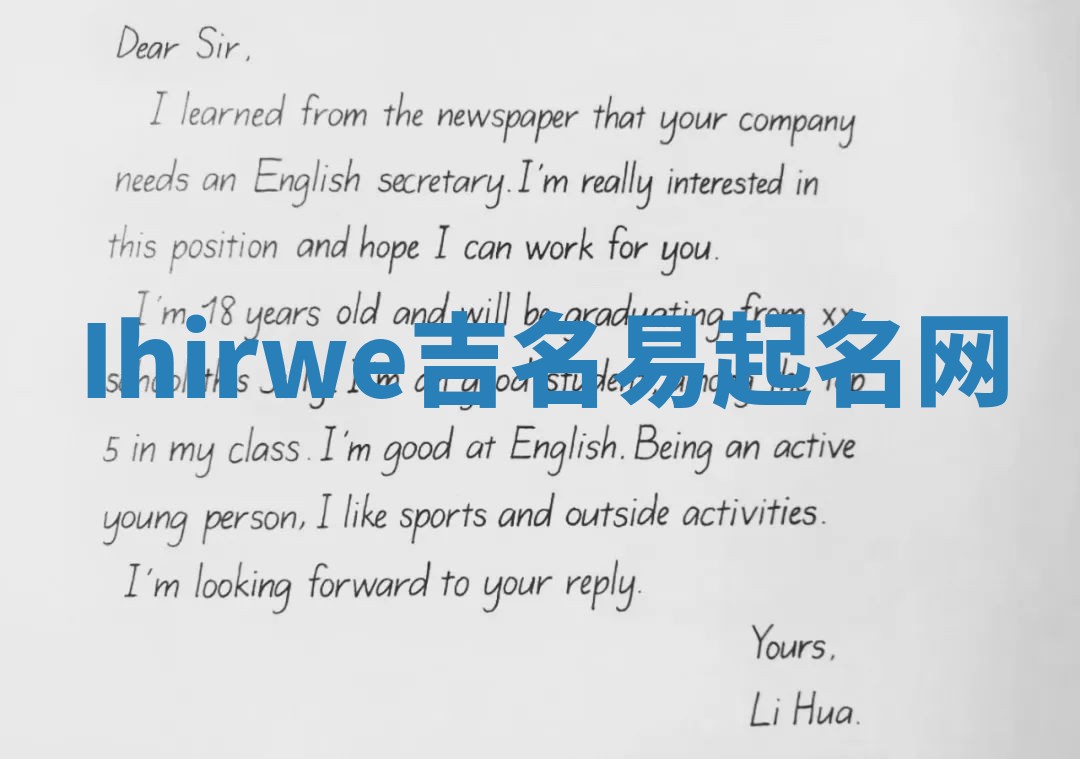 Dear Sir,
I learned from the newspaper that your company
needs an English secretary. I'm really interested in
this position and hope I can work for you.
I'm 18 years old and will be graduating from xx
Ihirwe吉名易起名网
school this July. I'm a good student, among the top
5 in my class. I'm good at English. Being an active
young person, I like sports and outside activities.
I'm looking forward to your reply.
Yours,
Li Hua.